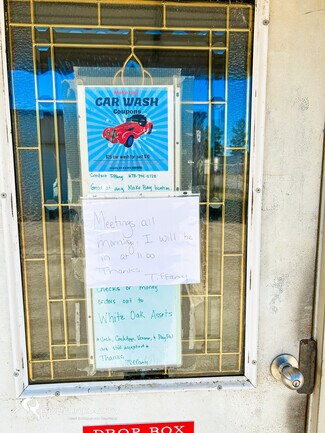 CAR WASH
Coupons
Contact Tiffany
Good at any
Meeting all
morning I will be
in at 11:00
Thanks
Tiffany
Checks or money
orders out to
White Oak Assets
Cash, CashApp, Venmo, & PayPal
are not accepted
Thanks
Tiffany
DROP BOX